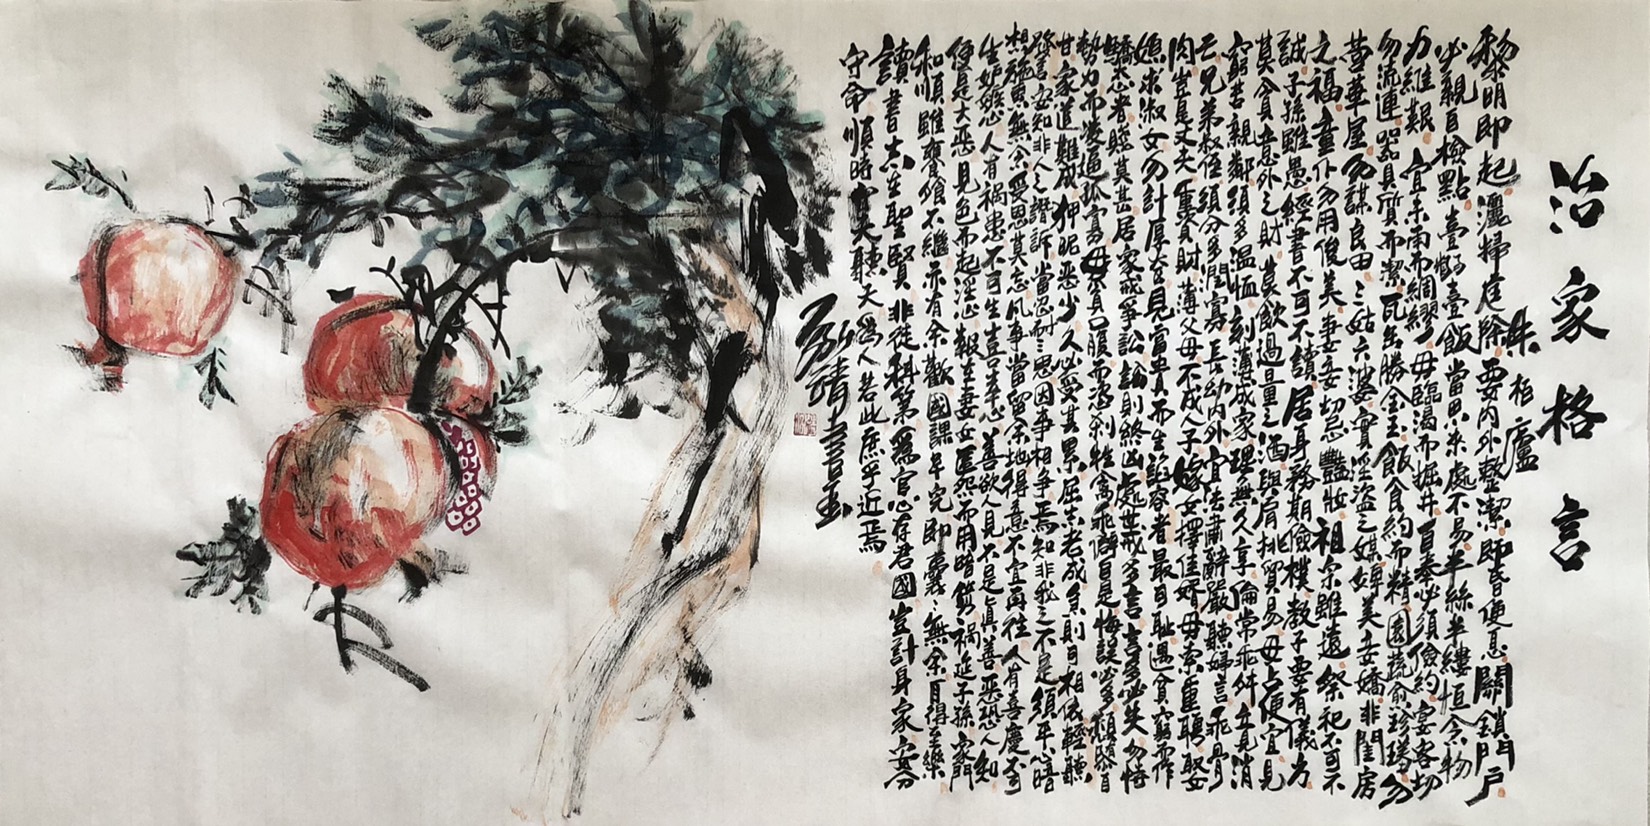 治家格言
朱柏廬
黎明即起灑掃庭除要內外整潔即昏便息關鎖門戶
必親自檢點壹粥壹飯當思來處不易半絲半縷恒念物
力維艱宜未雨而綢繆毋臨渴而掘井自奉必須儉約宴客切
勿流連器具質而潔瓦缶勝金玉飯食約而精園蔬俞珍羞勿
營華屋勿謀良田三姑六婆實淫盜之媒婢美妾嬌非閨房
之福童仆勿用俊美妻妾切忌艷妝祖宗雖遠祭祀不可不
誠子孫雖愚經書不可不讀居身務期儉樸教子要有儀方
莫貪意外之財莫飲過量之酒與肩挑貿易毋占便宜見
窮苦親鄰須多溫恤刻薄成家理無久享倫常乖舛立見消
亡兄弟叔侄須分多潤寡長幼內外宜法肅辭嚴聽婦言乖骨
肉豈是丈夫重資財薄父母不成人子嫁女擇佳婿毋索重聘娶
媳求淑女勿計厚奩見富貴而生諂容者最可恥遇貧窮而作
驕態者賤莫甚居家戒爭訟訟則終凶處世戒多言言多必失勿恃
勢力而凌逼孤寡毋貪口腹而恣殺牲禽乖僻自是悔誤必多頹惰自
甘家道難成狎昵惡少久必受其累屈志老成急則可相依輕聽
發言安知非人之譖訴當忍耐三思因事相爭焉知非我之不是須平心暗
想施惠無念受恩莫忘凡事當留余地得意不宜再往人有喜慶不可
生妒嫉心人有禍患不可生喜幸心善欲人見不是真善惡恐人知
便是大惡見色而起淫心報在妻女匿怨而用暗箭禍延子孫家門
和順雖饔飧不繼亦有余歡國課早完即囊橐無余自得至樂
讀書志在聖賢非徒科第為官心存君國豈計身家安分
守命順時聽天為人若此庶乎近焉